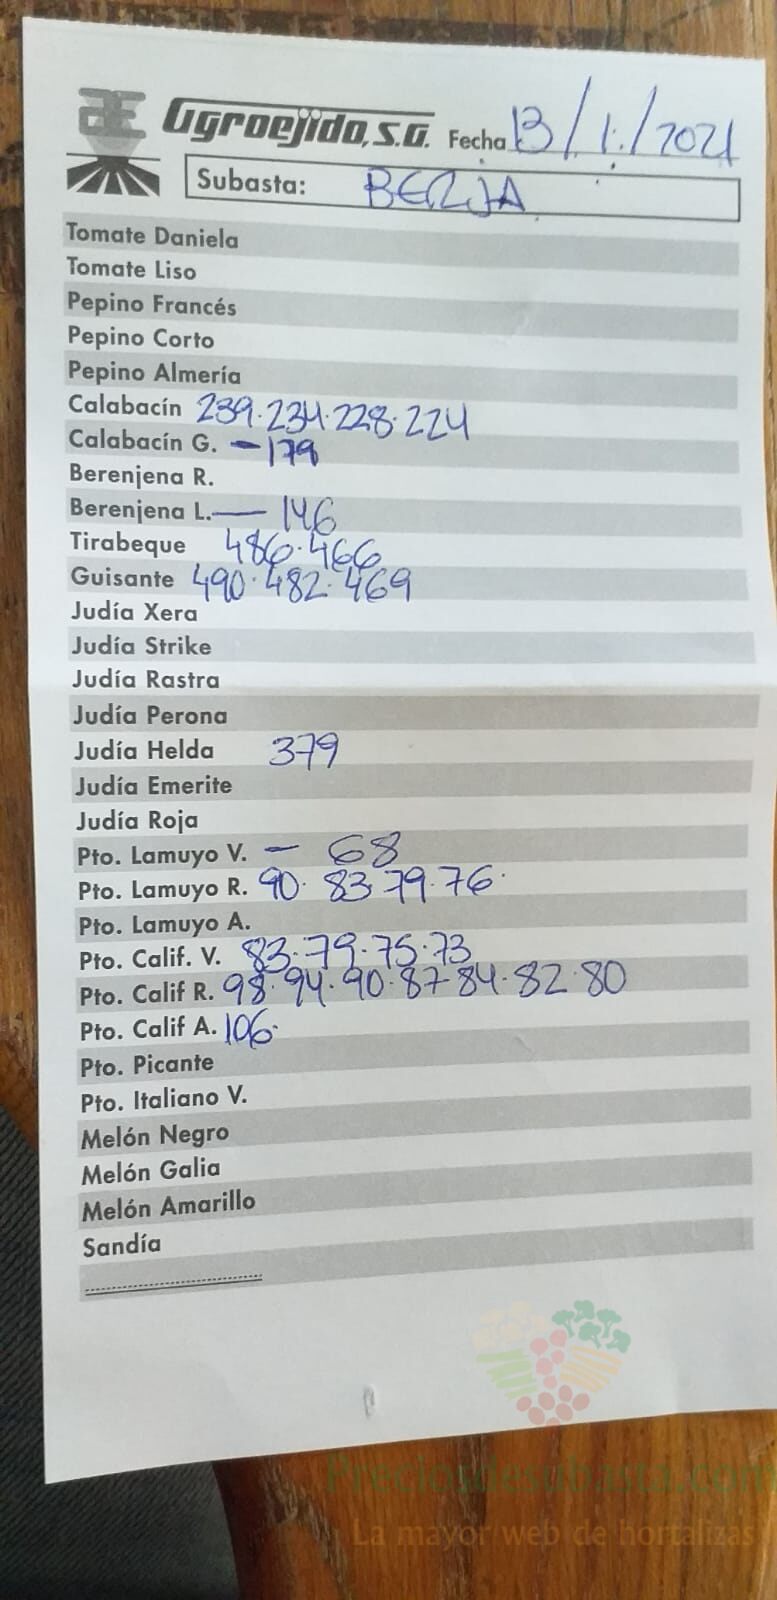 Agroejido, S.A. Fecha 13/1/2021
Subasta: BERJA
Tomate Daniela
Tomate Liso
Pepino Francés
Pepino Corto
Pepino Almería
Calabacín 239.234.228.224
Calabacín G. -179
Berenjena R.
Berenjena L. - 146
Tirabeque 486.466
Guisante 490.482.469
Judía Xera
Judía Strike
Judía Rastra
Judía Perona
Judía Helda 379
Judía Emerite
Judía Roja
Pto. Lamuyo V. - 68
Pto. Lamuyo R. 90. 83.79.76.
Pto. Lamuyo A.
Pto. Calif. V. 83.79.75.73
Pto. Calif R. 98.94.90.87.84.82.80
Pto. Calif A. 106.
Pto. Picante
Pto. Italiano V.
Melón Negro
Melón Galia
Melón Amarillo
Sandía
Preciosdesubasta.com
La mayor web de hortalizas